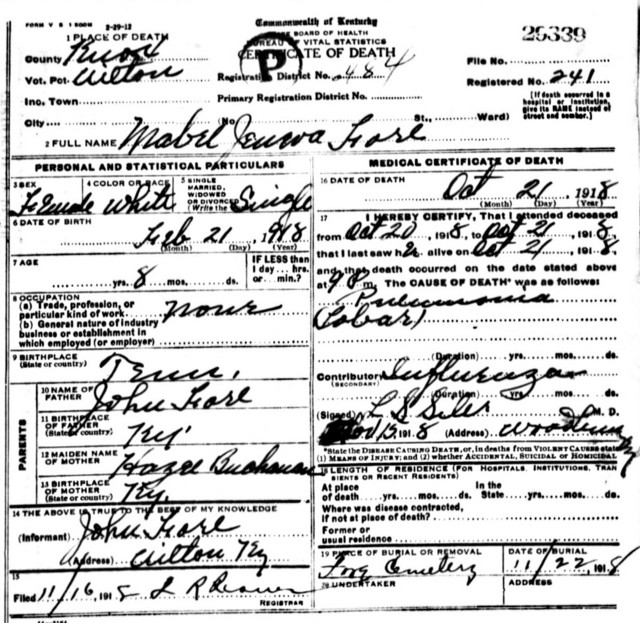 FORM V. S. 1 500M 2-29-12
Commonwealth of Kentucky
STATE BOARD OF HEALTH
BUREAU OF VITAL STATISTICS
CERTIFICATE OF DEATH
25339
1 PLACE OF DEATH
County Knox
Vot. Pct.
Inc. Town
City
P
Registration District No. 2484
Primary Registration District No.
File No.
Registered No. 241
(No. St., Ward)
[If death occurred in a hospital or institution, give its NAME instead of street and number.]
2 FULL NAME Mabel
PERSONAL AND STATISTICAL PARTICULARS
3 SEX Female
4 COLOR OR RACE White
5 SINGLE, MARRIED, WIDOWED OR DIVORCED (Write the Single
6 DATE OF BIRTH Feb 21, 1918
(Month) (Day) (Year)
7 AGE
yrs. 8 mos. ds.
IF LESS than 1 day... hrs. or min.?
8 OCCUPATION
(a) Trade, profession, or particular kind of work None
(b) General nature of industry business or establishment in which employed (or employer)
9 BIRTHPLACE (State or country) Tenn.
PARENTS
10 NAME OF FATHER John
11 BIRTHPLACE OF FATHER (State or country) Ky
12 MAIDEN NAME OF MOTHER Hazel Buchanan
13 BIRTHPLACE OF MOTHER Ky.
14 THE ABOVE IS TRUE TO THE BEST OF MY KNOWLEDGE
(Informant) John
(Address) Ky
15
Filed 11/16, 1918
REGISTRAR
MEDICAL CERTIFICATE OF DEATH
16 DATE OF DEATH Oct 21, 1918
(Month) (Day) (Year)
17 I HEREBY CERTIFY, That I attended deceased
from Oct 20, 1918, to Oct 21, 1918
that I last saw h alive on Oct 21, 1918
and that death occurred on the date stated above
at m. The CAUSE OF DEATH* was as follows
Pneumonia
(Lobar)
(Duration) yrs. mos. ds.
Contributory Influenza
(SECONDARY) (Duration) yrs. mos. ds.
(Signed) M. D.
Nov 15, 1918 (Address)
*State the DISEASE CAUSING DEATH, or, in deaths from VIOLENT CAUSES state (1) MEANS OF INJURY; and (2) whether ACCIDENTAL, SUICIDAL or HOMICIDAL
18 LENGTH OF RESIDENCE (FOR HOSPITALS, INSTITUTIONS, TRANSIENTS OR RECENT RESIDENTS)
At place of death yrs. mos. ds. In the State yrs. mos. ds.
Where was disease contracted, if not at place of death?
Former or usual residence
19 PLACE OF BURIAL OR REMOVAL Cemetery
DATE OF BURIAL 11/22, 1918
20 UNDERTAKER
ADDRESS